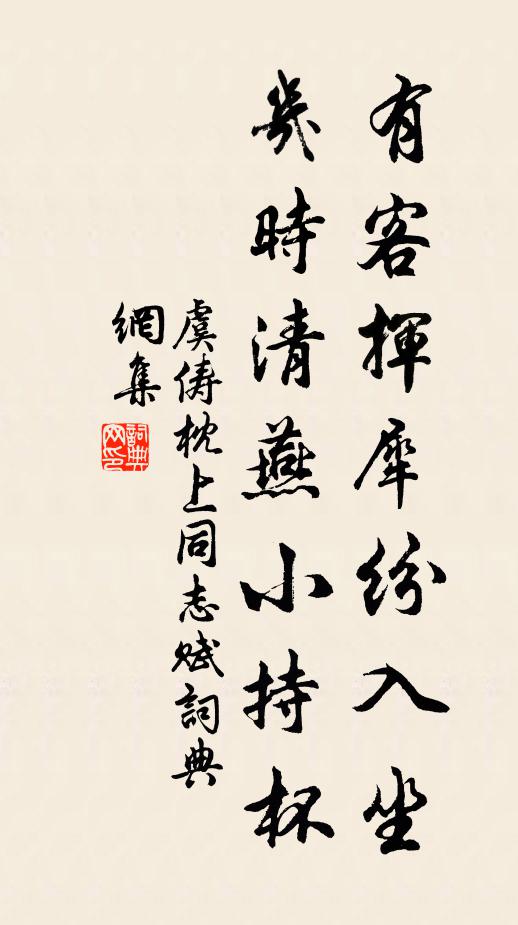 有客揮犀紛入坐
幾時清燕小持杯
虞儔枕上同志賦詞典
網集
詞典网印